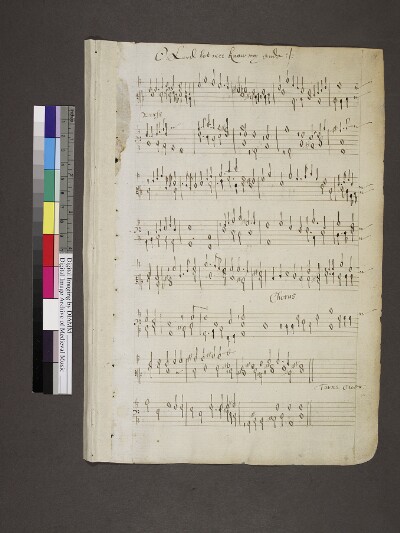 O Lord let mee know my ende :/
Verse
Chorus
Digital Imaging by DIAMM
Digital Image Archive of Medieval Music